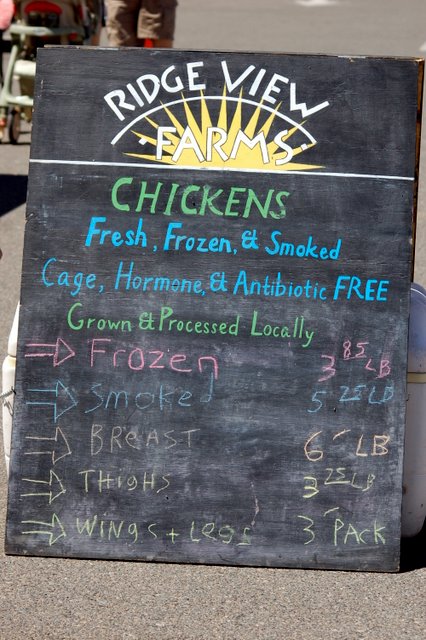 RIDGE VIEW
FARMS
CHICKENS
Fresh, Frozen, & Smoked
Cage, Hormone, & Antibiotic FREE
Grown & Processed Locally
Frozen 3 85 LB
Smoked 5 25 LB
BREAST 6 - LB
THIGHS 3 25 LB
WINGS + LEGS 3 - PACK